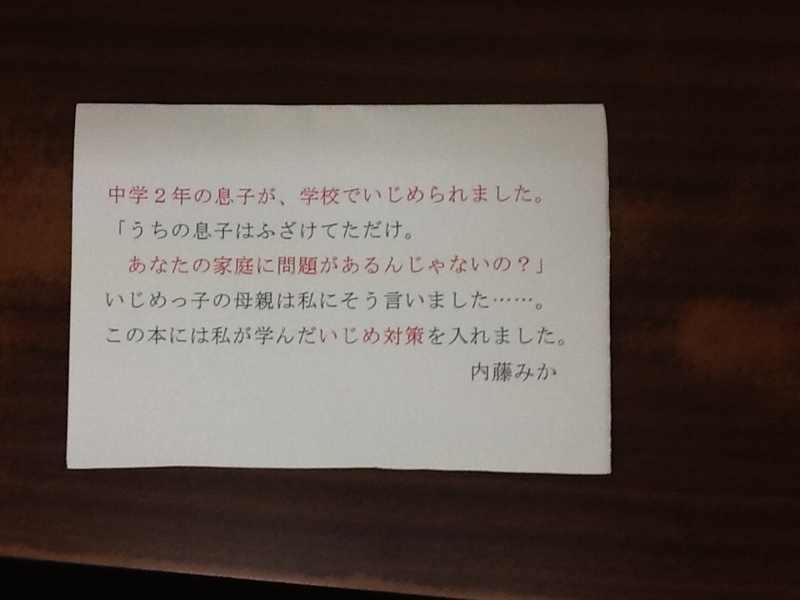 中学２年の息子が、学校でいじめられました。
「うちの息子はふざけてただけ。
あなたの家庭に問題があるんじゃないの？」
いじめっ子の母親は私にそう言いました……。
この本には私が学んだいじめ対策を入れました。
内藤みか